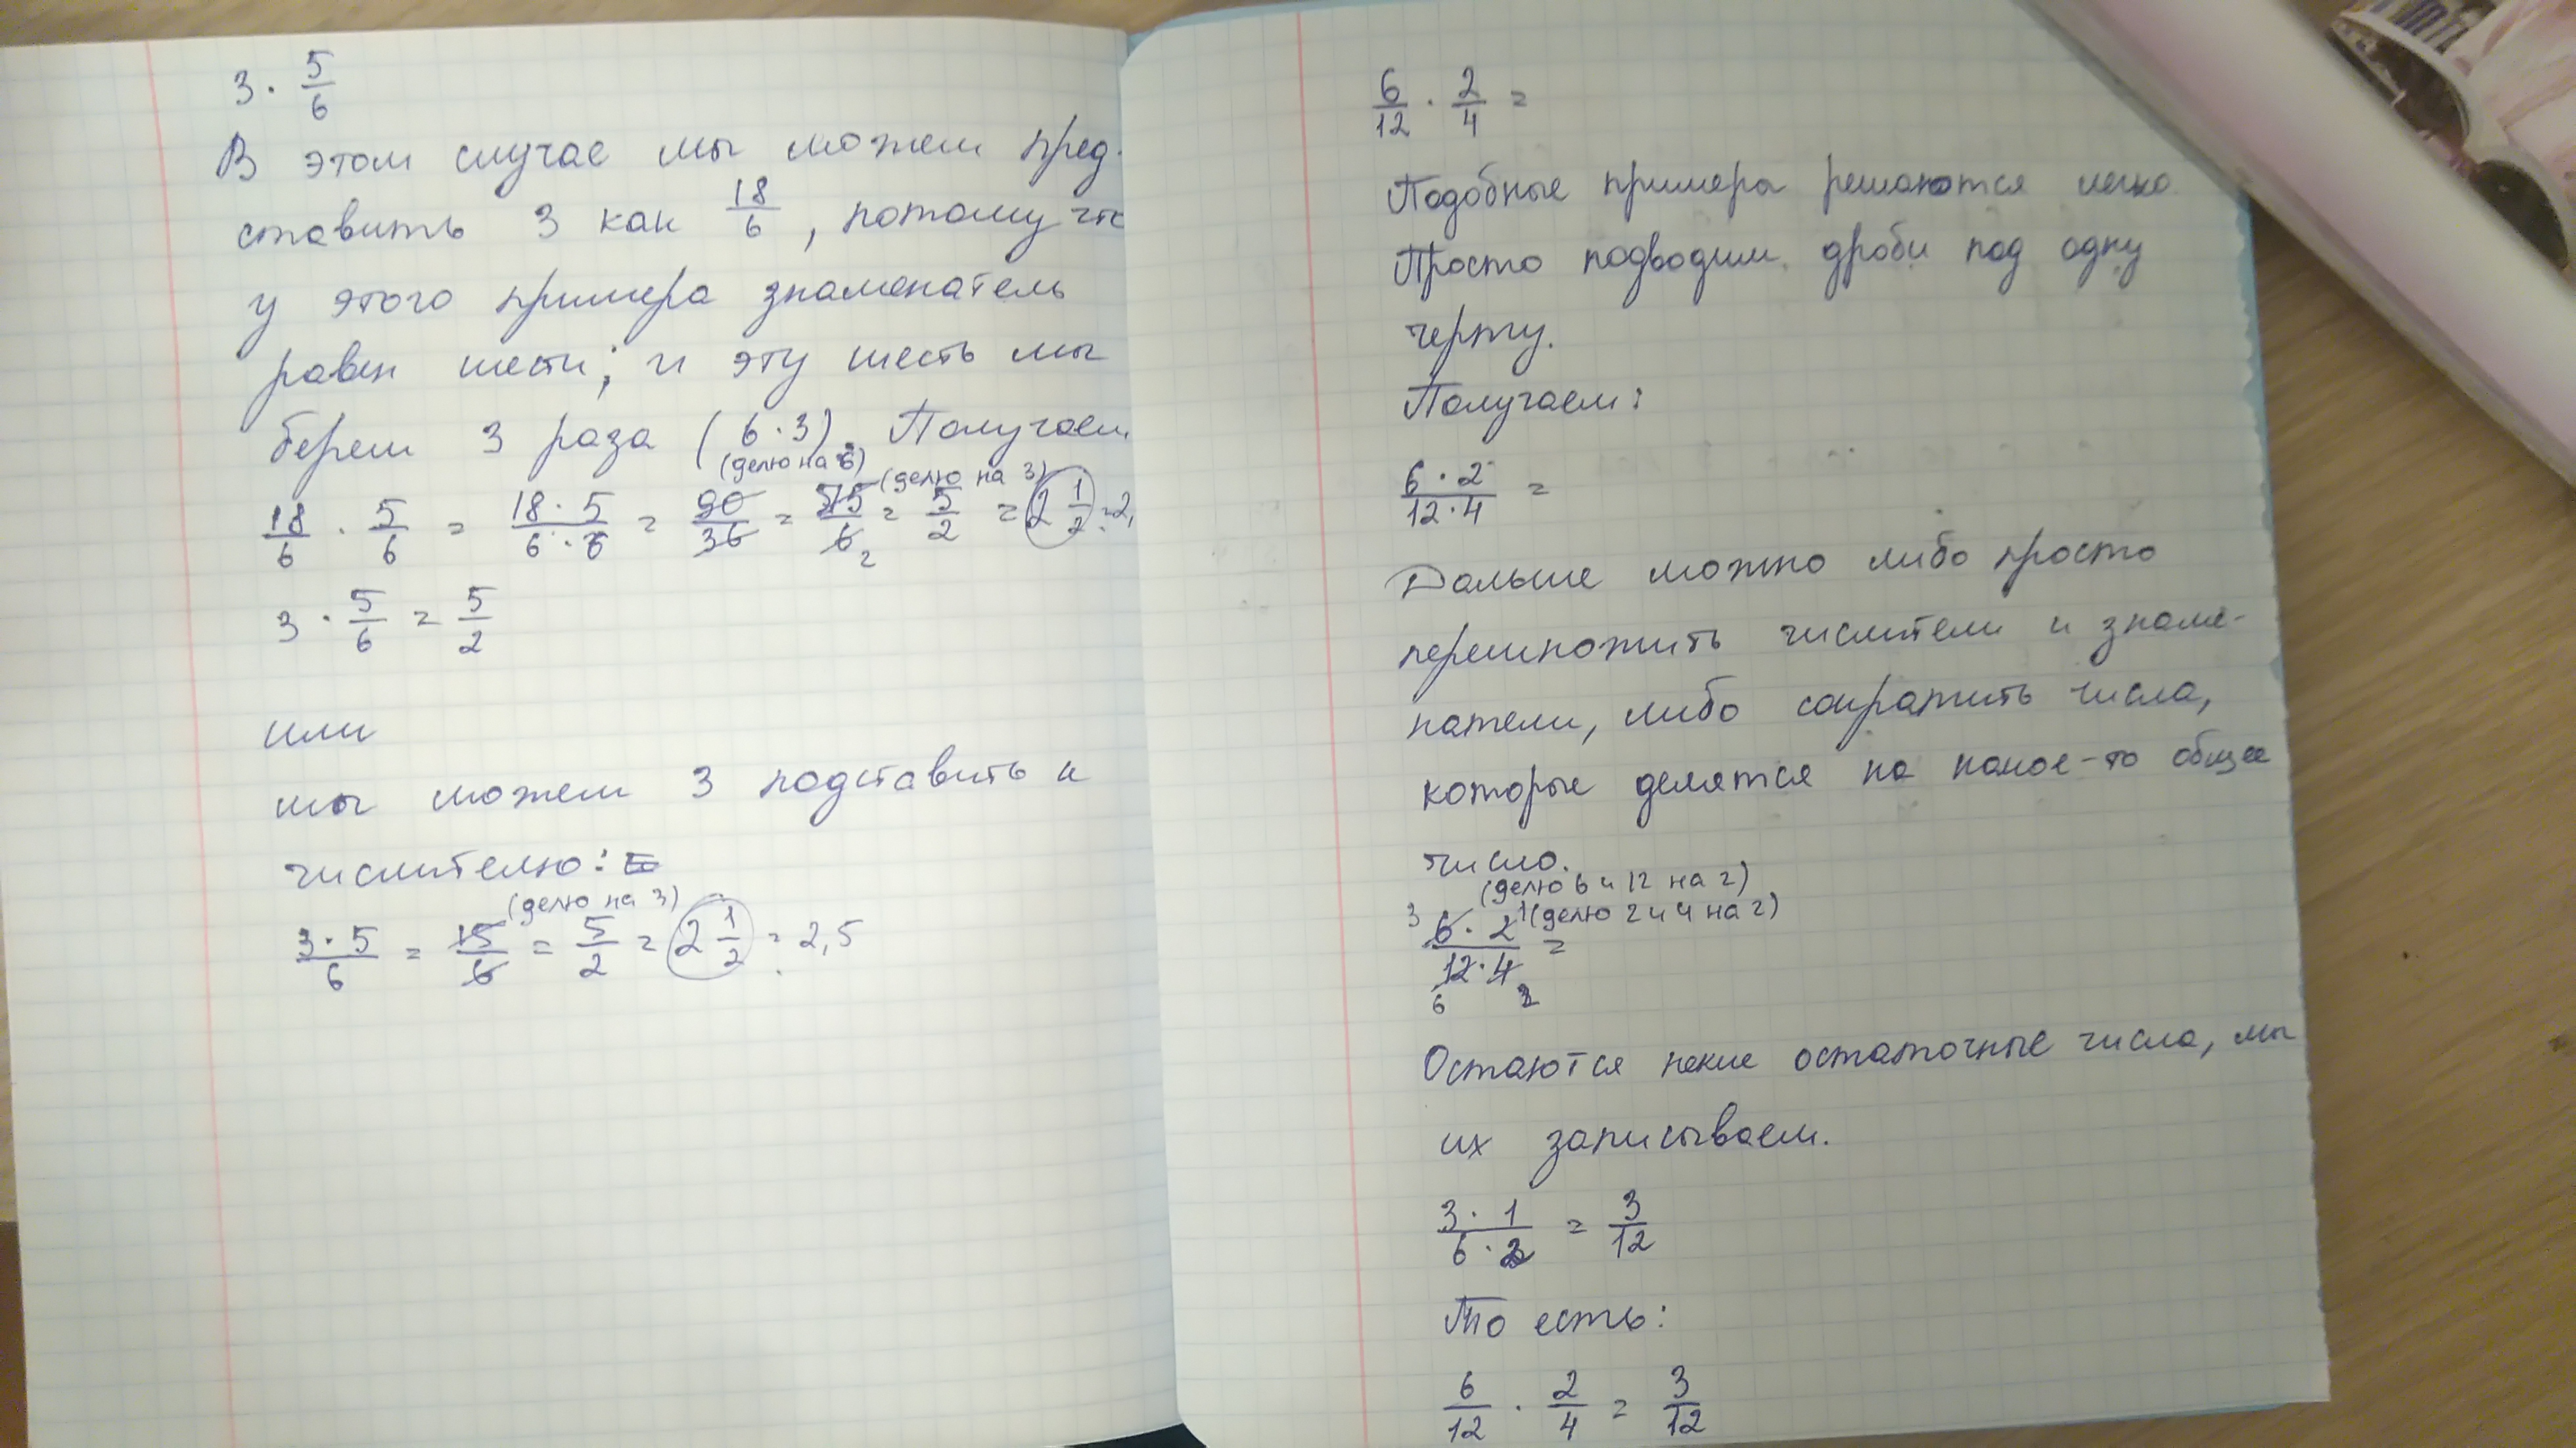 3 · 5/6
В этом случае мы можем пред-
ставить 3 как 18/6, потому что
у этого примера знаменатель
равен шести; и эту шесть мы
берем 3 раза (6 · 3). Получаем
(делю на 6) (делю на 3)
18/6 · 5/6 = 18 · 5/6 · 6 = 90/36 = 15/6 = 5/2 = 2 1/2 = 2,
2
3 · 5/6 = 5/2
или
мы можем 3 подставить к
числителю:
(делю на 3)
3 · 5/6 = 15/6 = 5/2 = 2 1/2 = 2,5
6/12 · 2/4 =
Подобные примеры решаются легко
Просто подводим дроби под одну
черту.
Получаем:
6 · 2/12 · 4 =
Дальше можно либо просто
перемножить числители и знаме-
натели, либо сократить числа,
которые делятся на какое-то общее
число.
(делю 6 и 12 на 2)
3 1 (делю 2 и 4 на 2)
6 · 2/12 · 4 =
6 2
Остаются некие остаточные числа, мы
их записываем.
3 · 1/6 · 2 = 3/12
То есть:
6/12 · 2/4 = 3/12